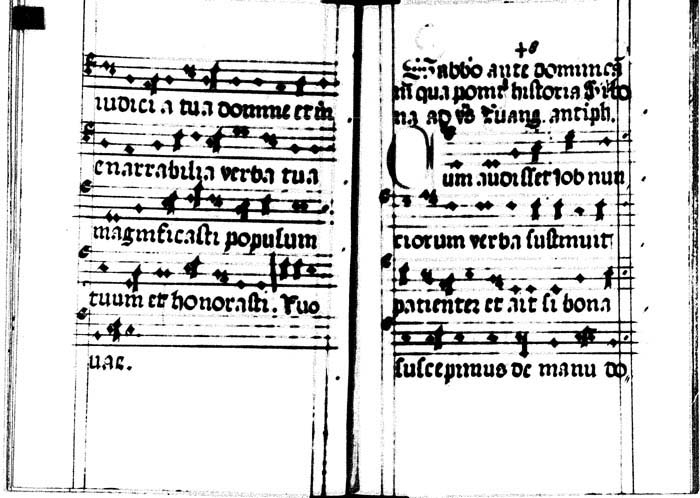 iudicia tua domine et in
enarrabilia verba tua
magnificasti populum
tuum et honorasti. Euo
uae.
Sabbo ante dominicā
in qua ponit historia
na ad vs Euang. antiph.
Cum audisset iob nun
ciorum verba sustinuit
patienter et ait si bona
suscepimus de manu do